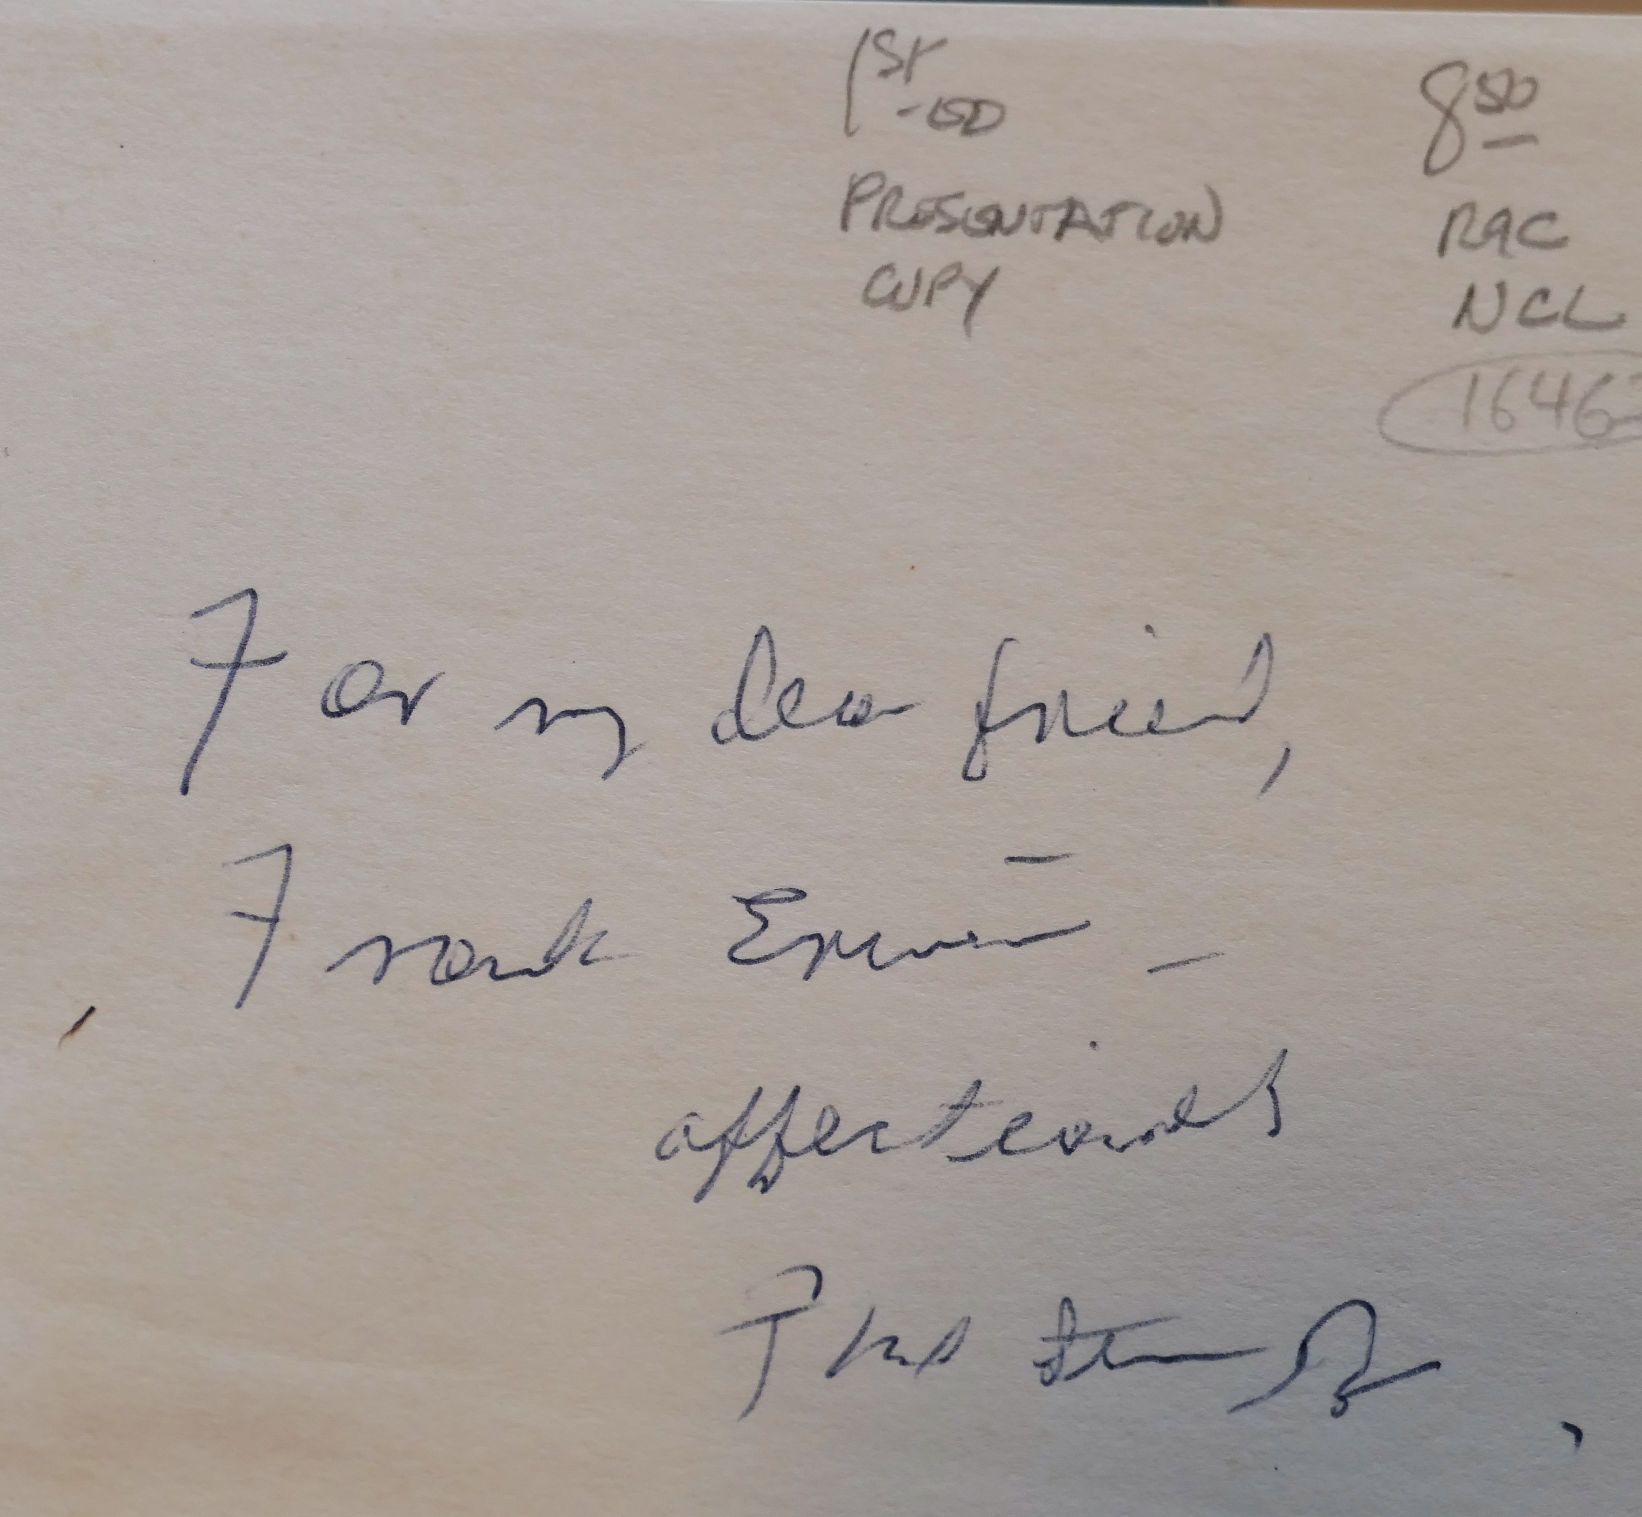 1ST -ED
8 50
PRESENTATION
COPY
RAC
NCL
1646
For my dear friend,
Frank Erwin –
affectionately